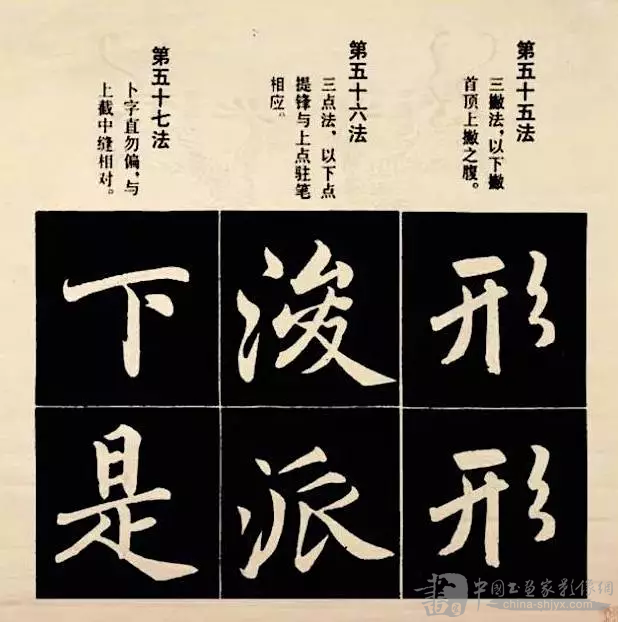 第五十五法
三撇法，以下撇
首顶上撇之腹。
形
形
第五十六法
三点法，以下点
提锋与上点驻笔
相应。
浚
派
第五十七法
卜字直勿偏，与
上截中缝相对。
下
是
中国书画家影像网
china-shjyx.com